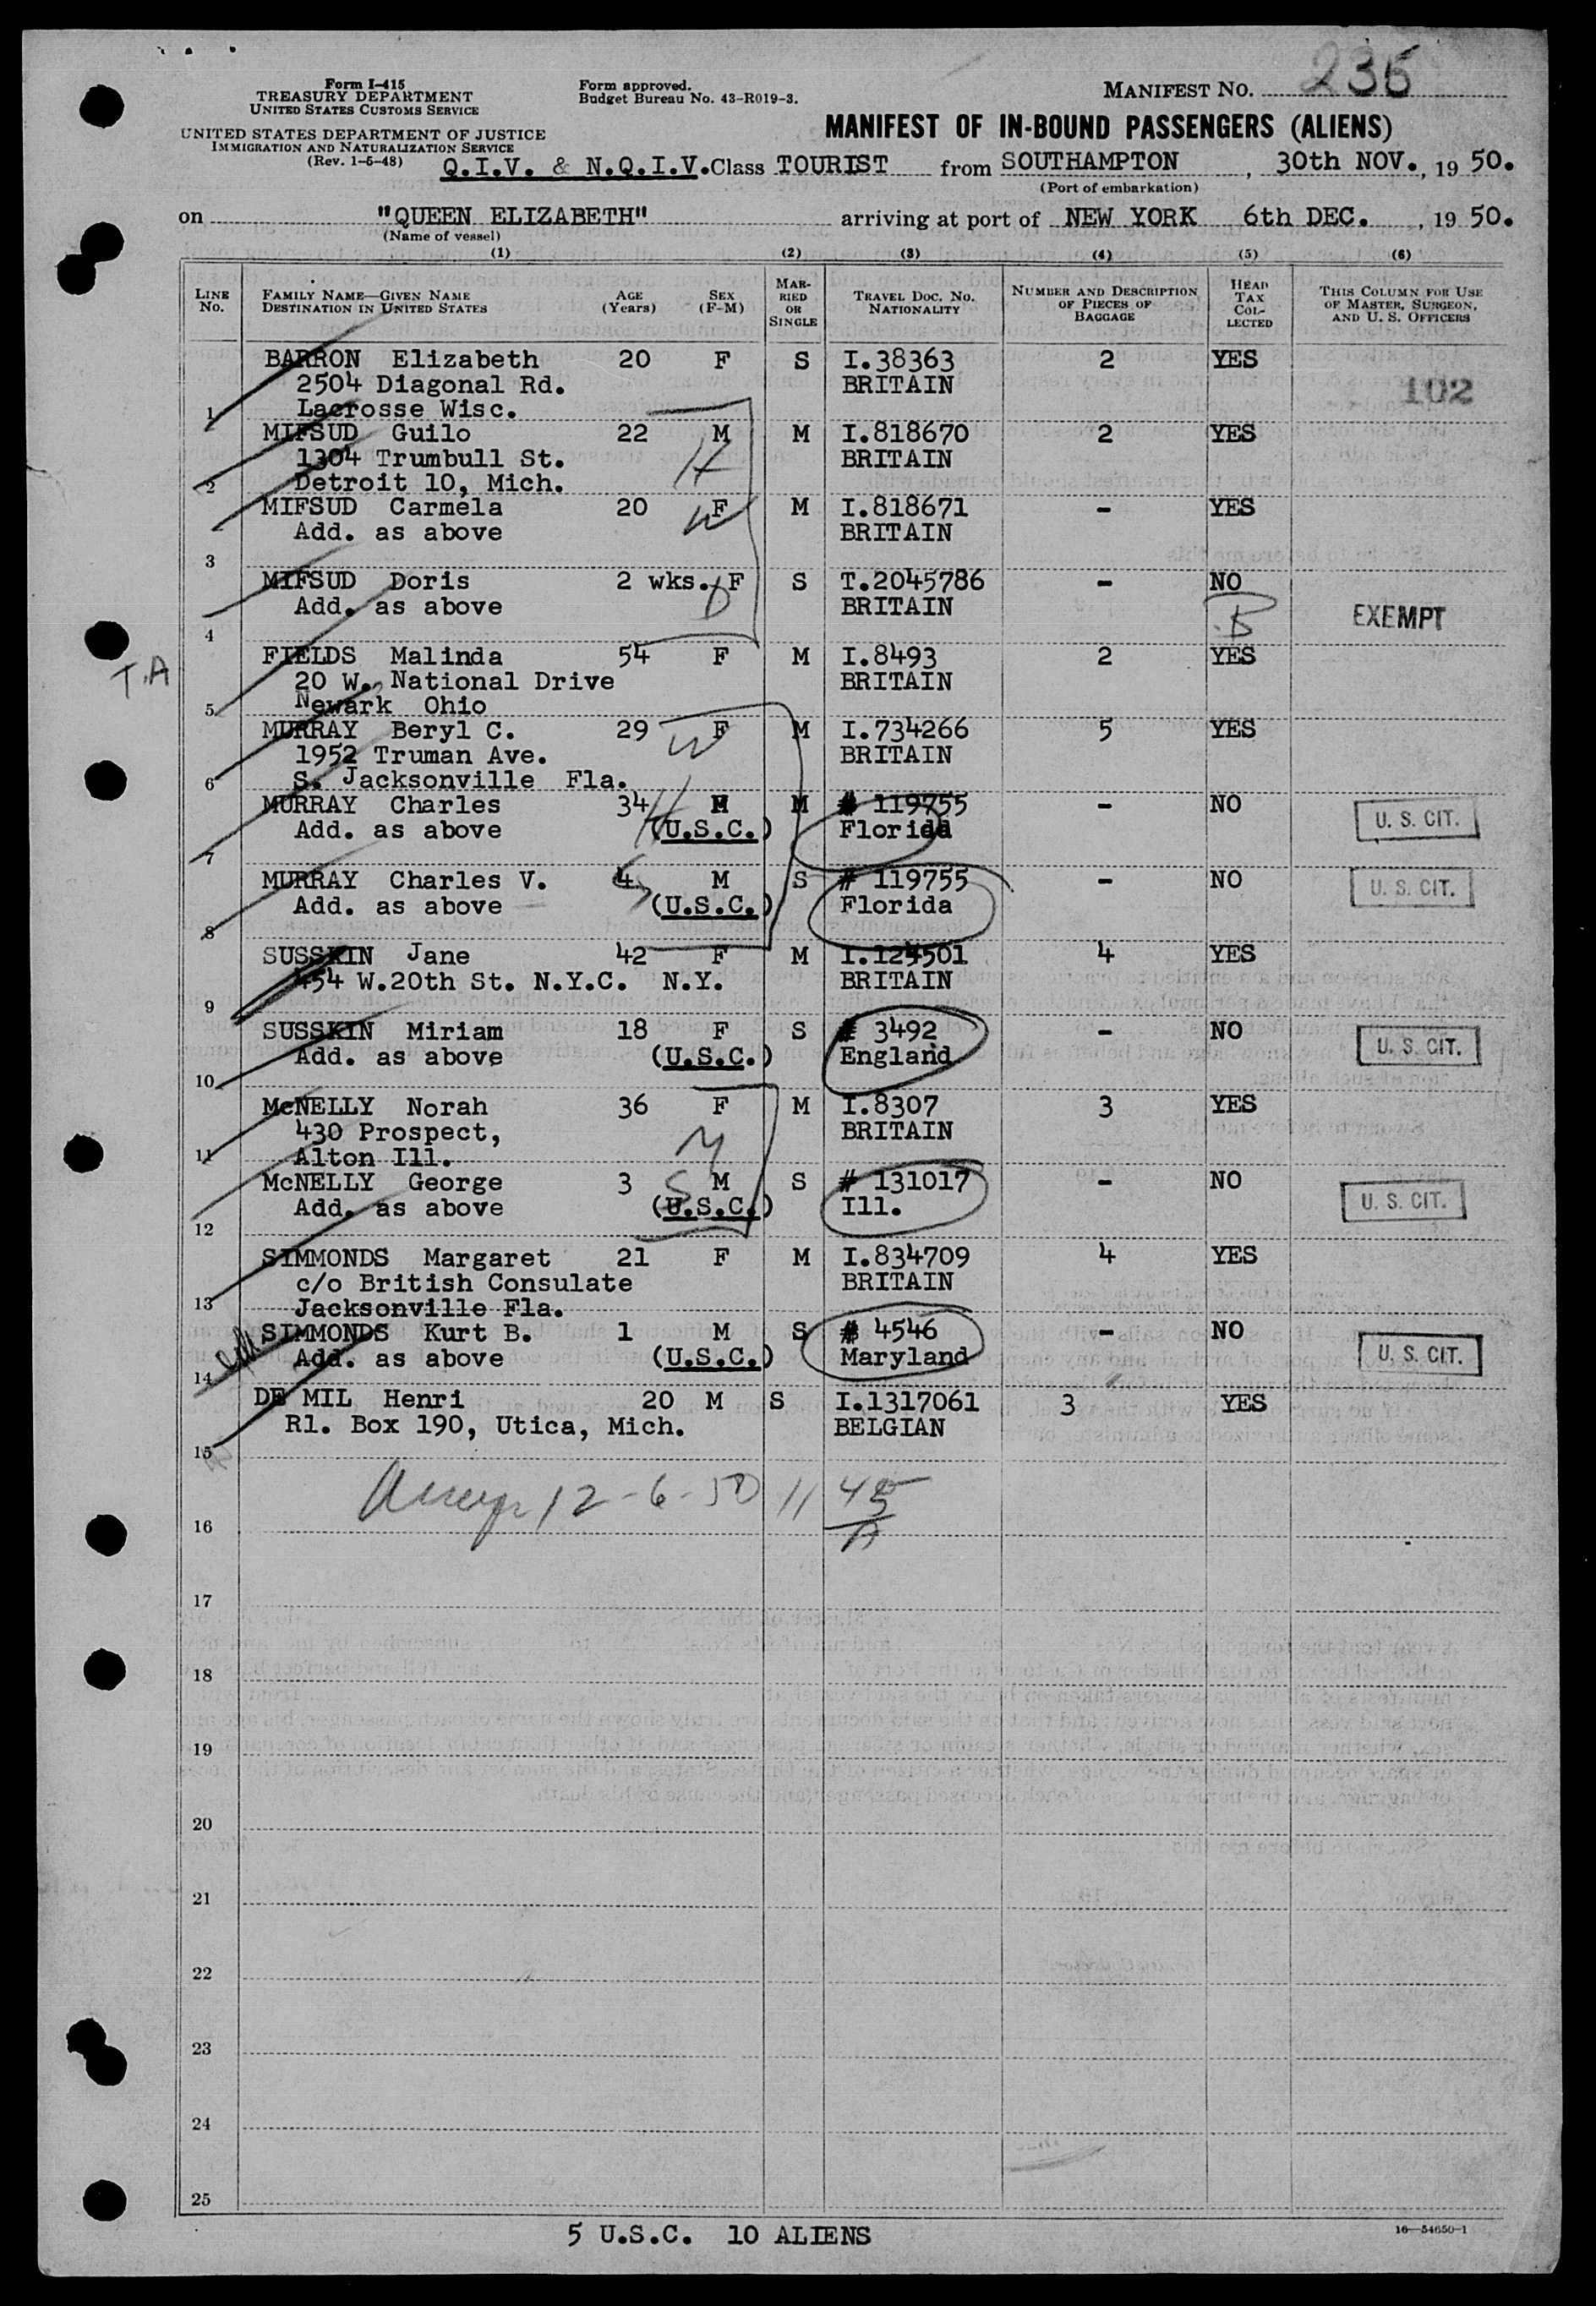 236
Form I-415
TREASURY DEPARTMENT
UNITED STATES CUSTOMS SERVICE
Form approved.
Budget Bureau No. 43-R019-3.
MANIFEST NO.
UNITED STATES DEPARTMENT OF JUSTICE
IMMIGRATION AND NATURALIZATION SERVICE
(Rev. 1-5-48)
MANIFEST OF IN-BOUND PASSENGERS (ALIENS)
Q.I.V. & N.Q.I.V. Class TOURIST from SOUTHAMPTON, 30th NOV., 19 50.
(Port of embarkation)
on "QUEEN ELIZABETH" arriving at port of NEW YORK 6th DEC., 19 50.
(Name of vessel)
(1) (2) (3) (4) (5) (6)
LINE NO. FAMILY NAME—GIVEN NAME DESTINATION IN UNITED STATES AGE (Years) SEX (F-M) MARRIED OR SINGLE TRAVEL DOC. NO. NATIONALITY NUMBER AND DESCRIPTION OF PIECES OF BAGGAGE HEAD TAX COLLECTED THIS COLUMN FOR USE OF MASTER, SURGEON, AND U. S. OFFICERS
BARRON Elizabeth 20 F S I.38363 2 YES
2504 Diagonal Rd. BRITAIN 102
1 Lacrosse Wisc.
MIFSUD Guilo 22 M M I.818670 2 YES
1304 Trumbull St. H BRITAIN
2 Detroit 10, Mich.
MIFSUD Carmela 20 F M I.818671 - YES
Add. as above W BRITAIN
3
MIFSUD Doris 2 wks. F S T.2045786 - NO
Add. as above D BRITAIN B EXEMPT
4
T.A FIELDS Malinda 54 F M I.8493 2 YES
20 W. National Drive BRITAIN
5 Newark Ohio
MURRAY Beryl C. 29 F M I.734266 5 YES
1952 Truman Ave. W BRITAIN
6 S. Jacksonville Fla.
MURRAY Charles 34 M M # 119755 - NO
Add. as above H (U.S.C.) Florida U. S. CIT.
7
MURRAY Charles V. 4 M S # 119755 - NO
Add. as above S (U.S.C.) Florida U. S. CIT.
8
SUSSKIN Jane 42 F M I.124501 4 YES
454 W.20th St. N.Y.C. N.Y. BRITAIN
9
SUSSKIN Miriam 18 F S # 3492 - NO
Add. as above (U.S.C.) England U. S. CIT.
10
McNELLY Norah 36 F M I.8307 3 YES
430 Prospect, M BRITAIN
11 Alton Ill.
McNELLY George 3 M S # 131017 - NO
Add. as above S (U.S.C.) Ill. U. S. CIT.
12
SIMMONDS Margaret 21 F M I.834709 4 YES
c/o British Consulate BRITAIN
13 Jacksonville Fla.
SIMMONDS Kurt B. 1 M S # 4546 - NO
Add. as above (U.S.C.) Maryland U. S. CIT.
14
DE MIL Henri 20 M S I.1317061 3 YES
Rl. Box 190, Utica, Mich. BELGIAN
15
12-6-50 11 45
A
16
17
18
19
20
21
22
23
24
25
5 U.S.C. 10 ALIENS
16—54650-1